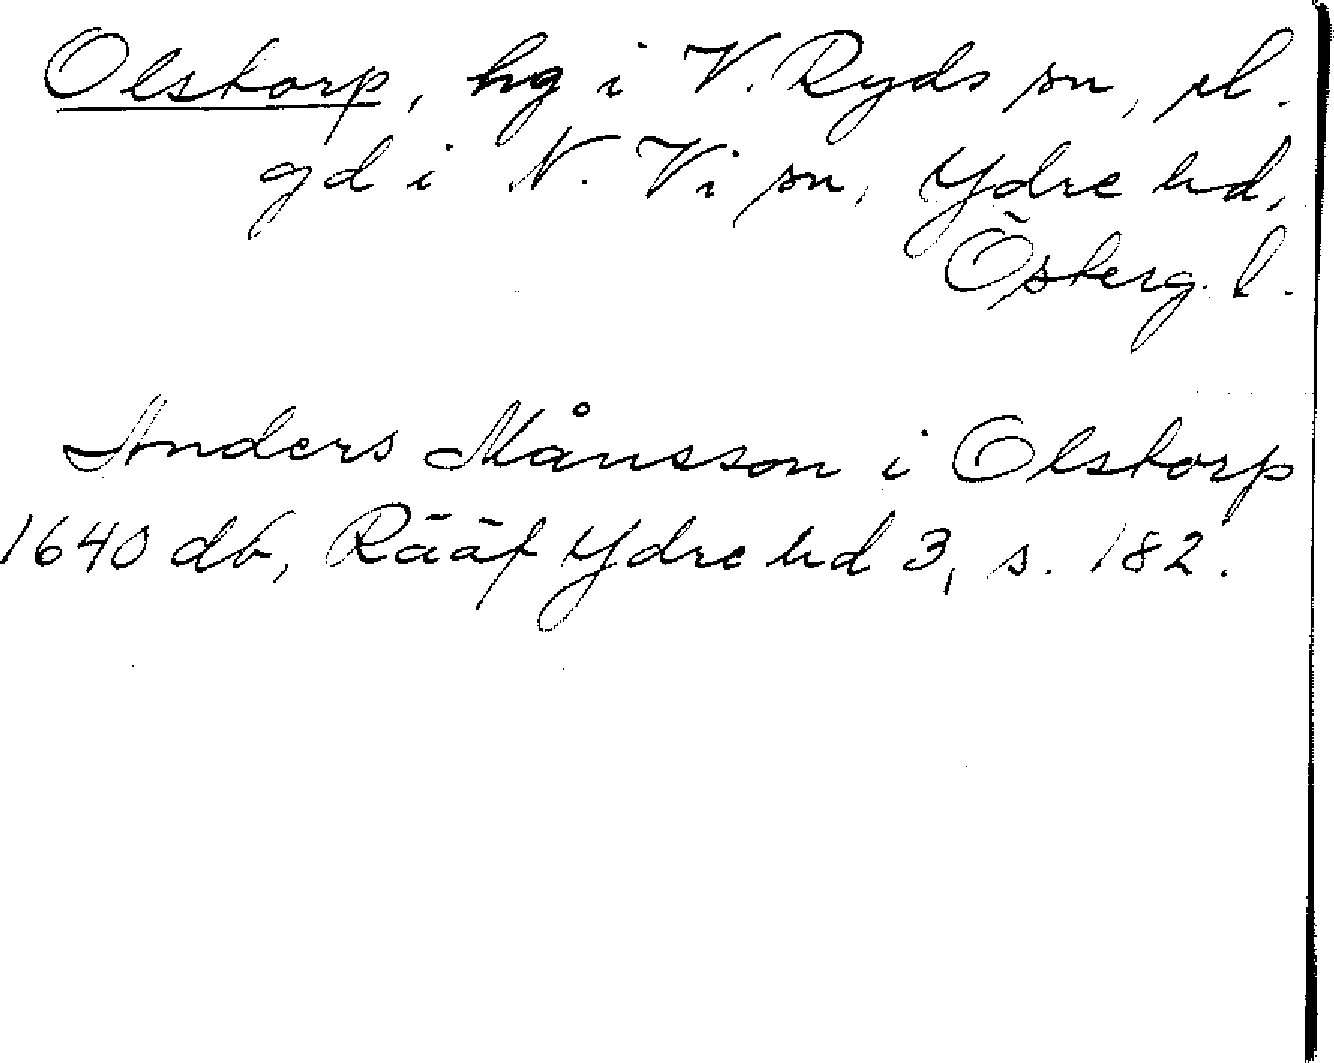 Olstorp, hg i V. Ryds sn, el.
gd i N. Vi sn, Ydre hd,
Österg. l.
Anders Månsson i Olstorp
1640 db, Rääf Ydre hd 3, s. 182.